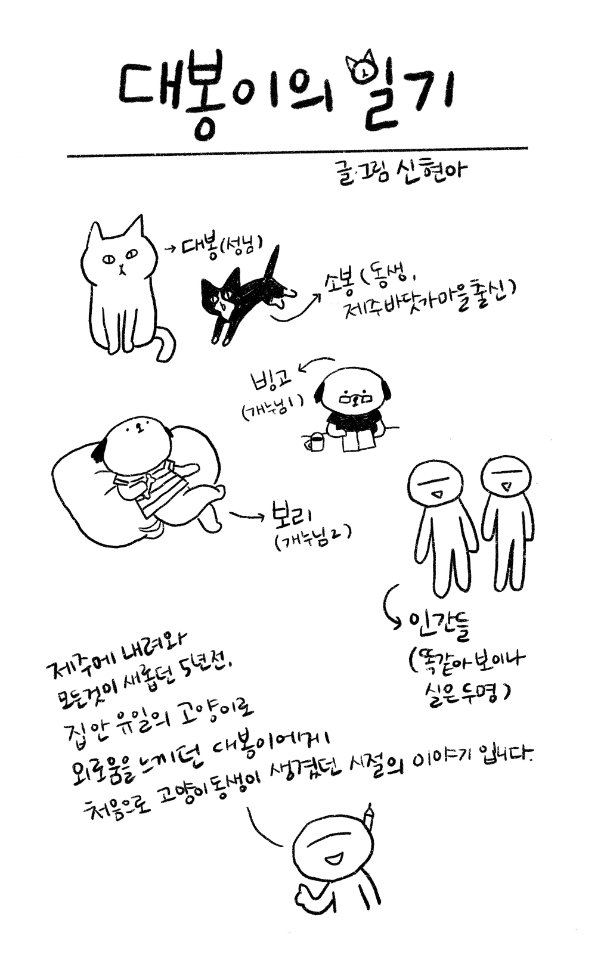 대봉이의 일기
글·그림 신현아
대봉(성님)
소봉(동생,
제주바닷가마을출신)
빙고
(개누님1)
보리
(개누님2)
인간들
(똑같아보이나
실은두명)
제주에 내려와
모든것이 새롭던 5년전.
집안 유일의 고양이로
외로움을 느끼던 대봉이에게
처음으로 고양이동생이 생겼던 시절의 이야기 입니다.